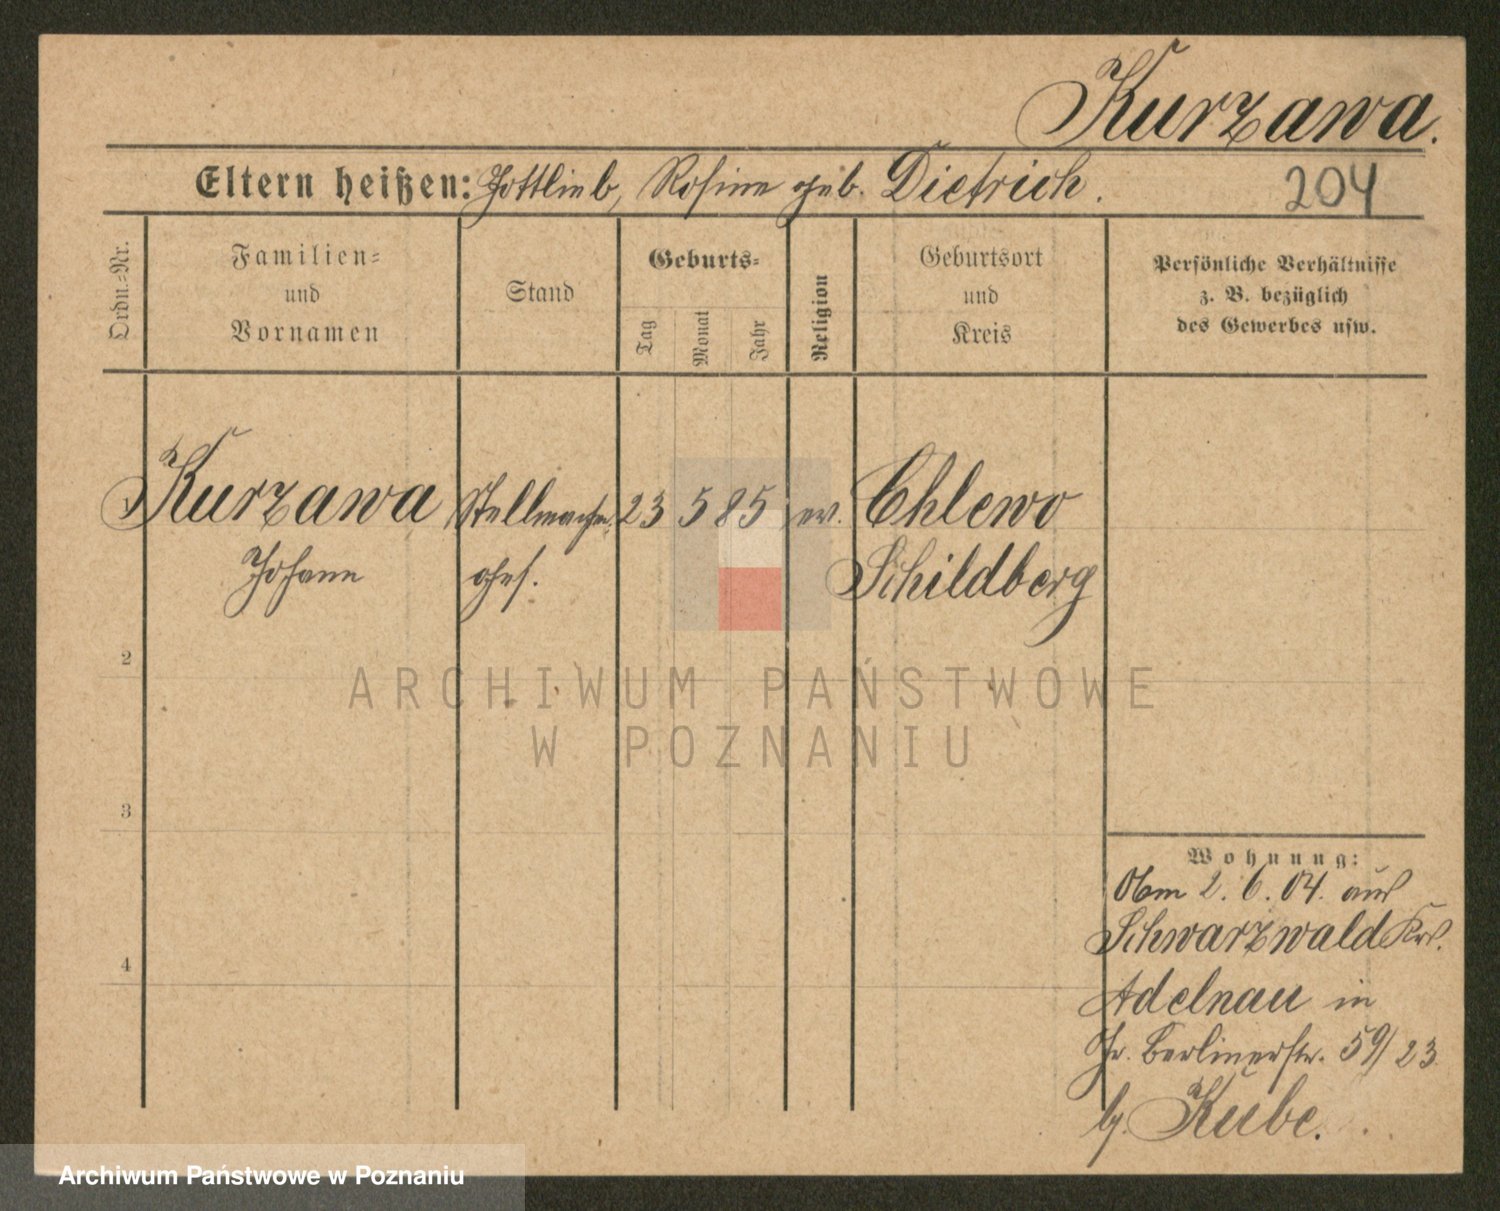 Kurzawa.
Eltern heißen: Gottlieb, Rosine geb. Dietrich.
204
Ordn.=Nr.
Familien=
und
Vornamen
Stand
Geburts=
Tag
Monat
Jahr
Religion
Geburtsort
und
Kreis
Persönliche Verhältnisse
z. B. bezüglich
des Gewerbes usw.
1 Kurzawa Stellmacher 23 5 85 ev. Chlewo
Johann ges. Schildberg
2
ARCHIWUM PAŃSTWOWE
W POZNANIU
3
Wohnung:
2. 6. 04. aus
Schwarzwald Krs.
4
Adelnau in
Gr. Berlinerstr. 59/23
b. Kube.
Archiwum Państwowe w Poznaniu